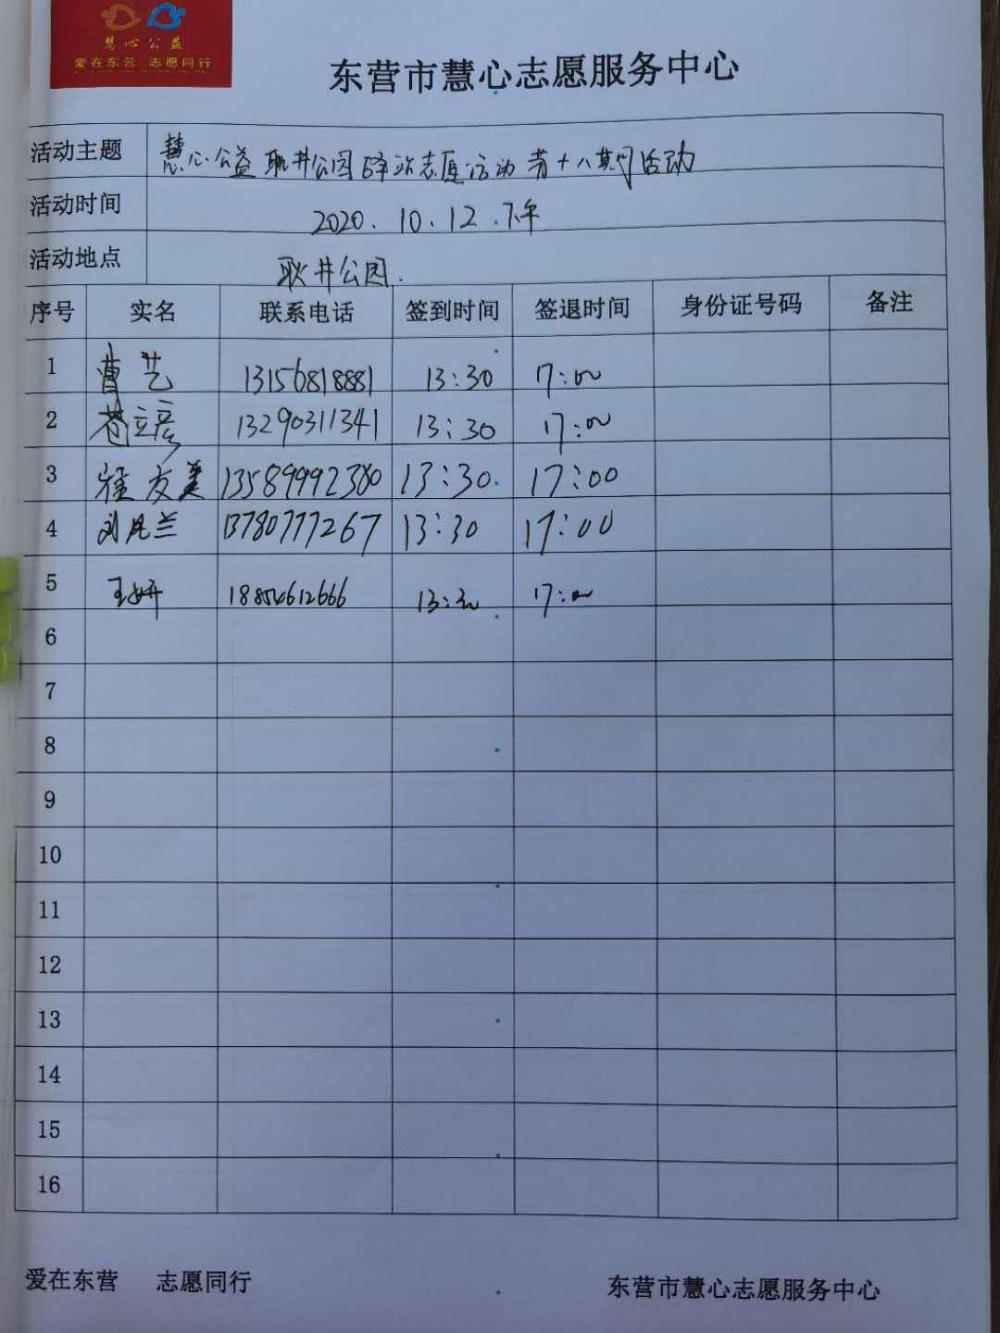 慧心公益
爱在东营 志愿同行
东营市慧心志愿服务中心
活动主题 慧心公益耿井公园驿站志愿活动第十八期活动
活动时间 2020.10.12.下午
活动地点 耿井公园.
序号 实名 联系电话 签到时间 签退时间 身份证号码 备注
1 曹艺 13156818881 13:30 17:00
2 苍立彦 13290311341 13:30 17:00
3 崔友美 13589992380 13:30 17:00
4 刘凤兰 13780777267 13:30 17:00
5 王妍 18854612666 13:30 17:00
6
7
8
9
10
11
12
13
14
15
16
爱在东营 志愿同行 东营市慧心志愿服务中心